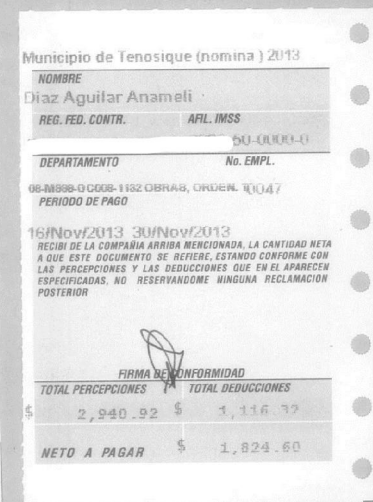 Municipio de Tenosique (nomina ) 2013
NOMBRE
Diaz Aguilar Anameli
REG. FED. CONTR. AFIL. IMSS
50-0000-0
DEPARTAMENTO No. EMPL.
1132 OBRAS, ORDEN. 10047
PERIODO DE PAGO
16/Nov/2013 30/Nov/2013
RECIBI DE LA COMPAÑIA ARRIBA MENCIONADA, LA CANTIDAD NETA
A QUE ESTE DOCUMENTO SE REFIERE, ESTANDO CONFORME CON
LAS PERCEPCIONES Y LAS DEDUCCIONES QUE EN EL APARECEN
ESPECIFICADAS, NO RESERVANDOME NINGUNA RECLAMACION
POSTERIOR
FIRMA DE CONFORMIDAD
TOTAL PERCEPCIONES TOTAL DEDUCCIONES
$ 2,940.92 $ 1,116.32
NETO A PAGAR $ 1,824.60